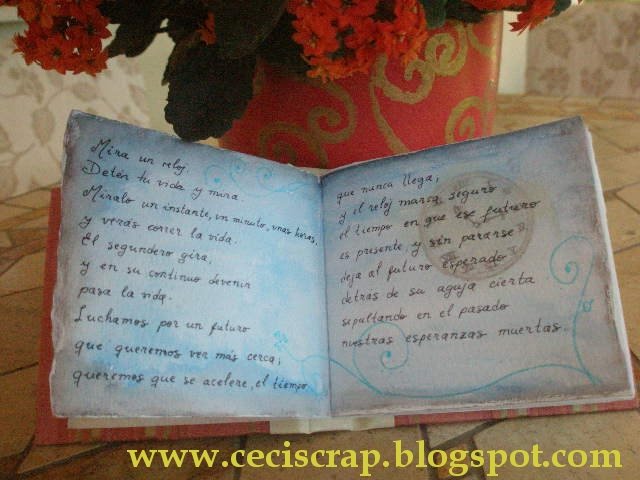 Mira un reloj.
Detén tu vida y mira.
Míralo un instante, un minuto, unas horas,
y verás correr la vida.
El segundero gira,
y en su continuo devenir
pasa la vida.
Luchamos por un futuro
que queremos ver más cerca,
queremos que se acelere, el tiempo
que nunca llega,
y el reloj marca seguro
el tiempo en que ese futuro
es presente, y sin pararse
deja al futuro esperado
detrás de su aguja cierta
sepultando en el pasado
nuestras esperanzas muertas.
www.ceciscrap.blogspot.com